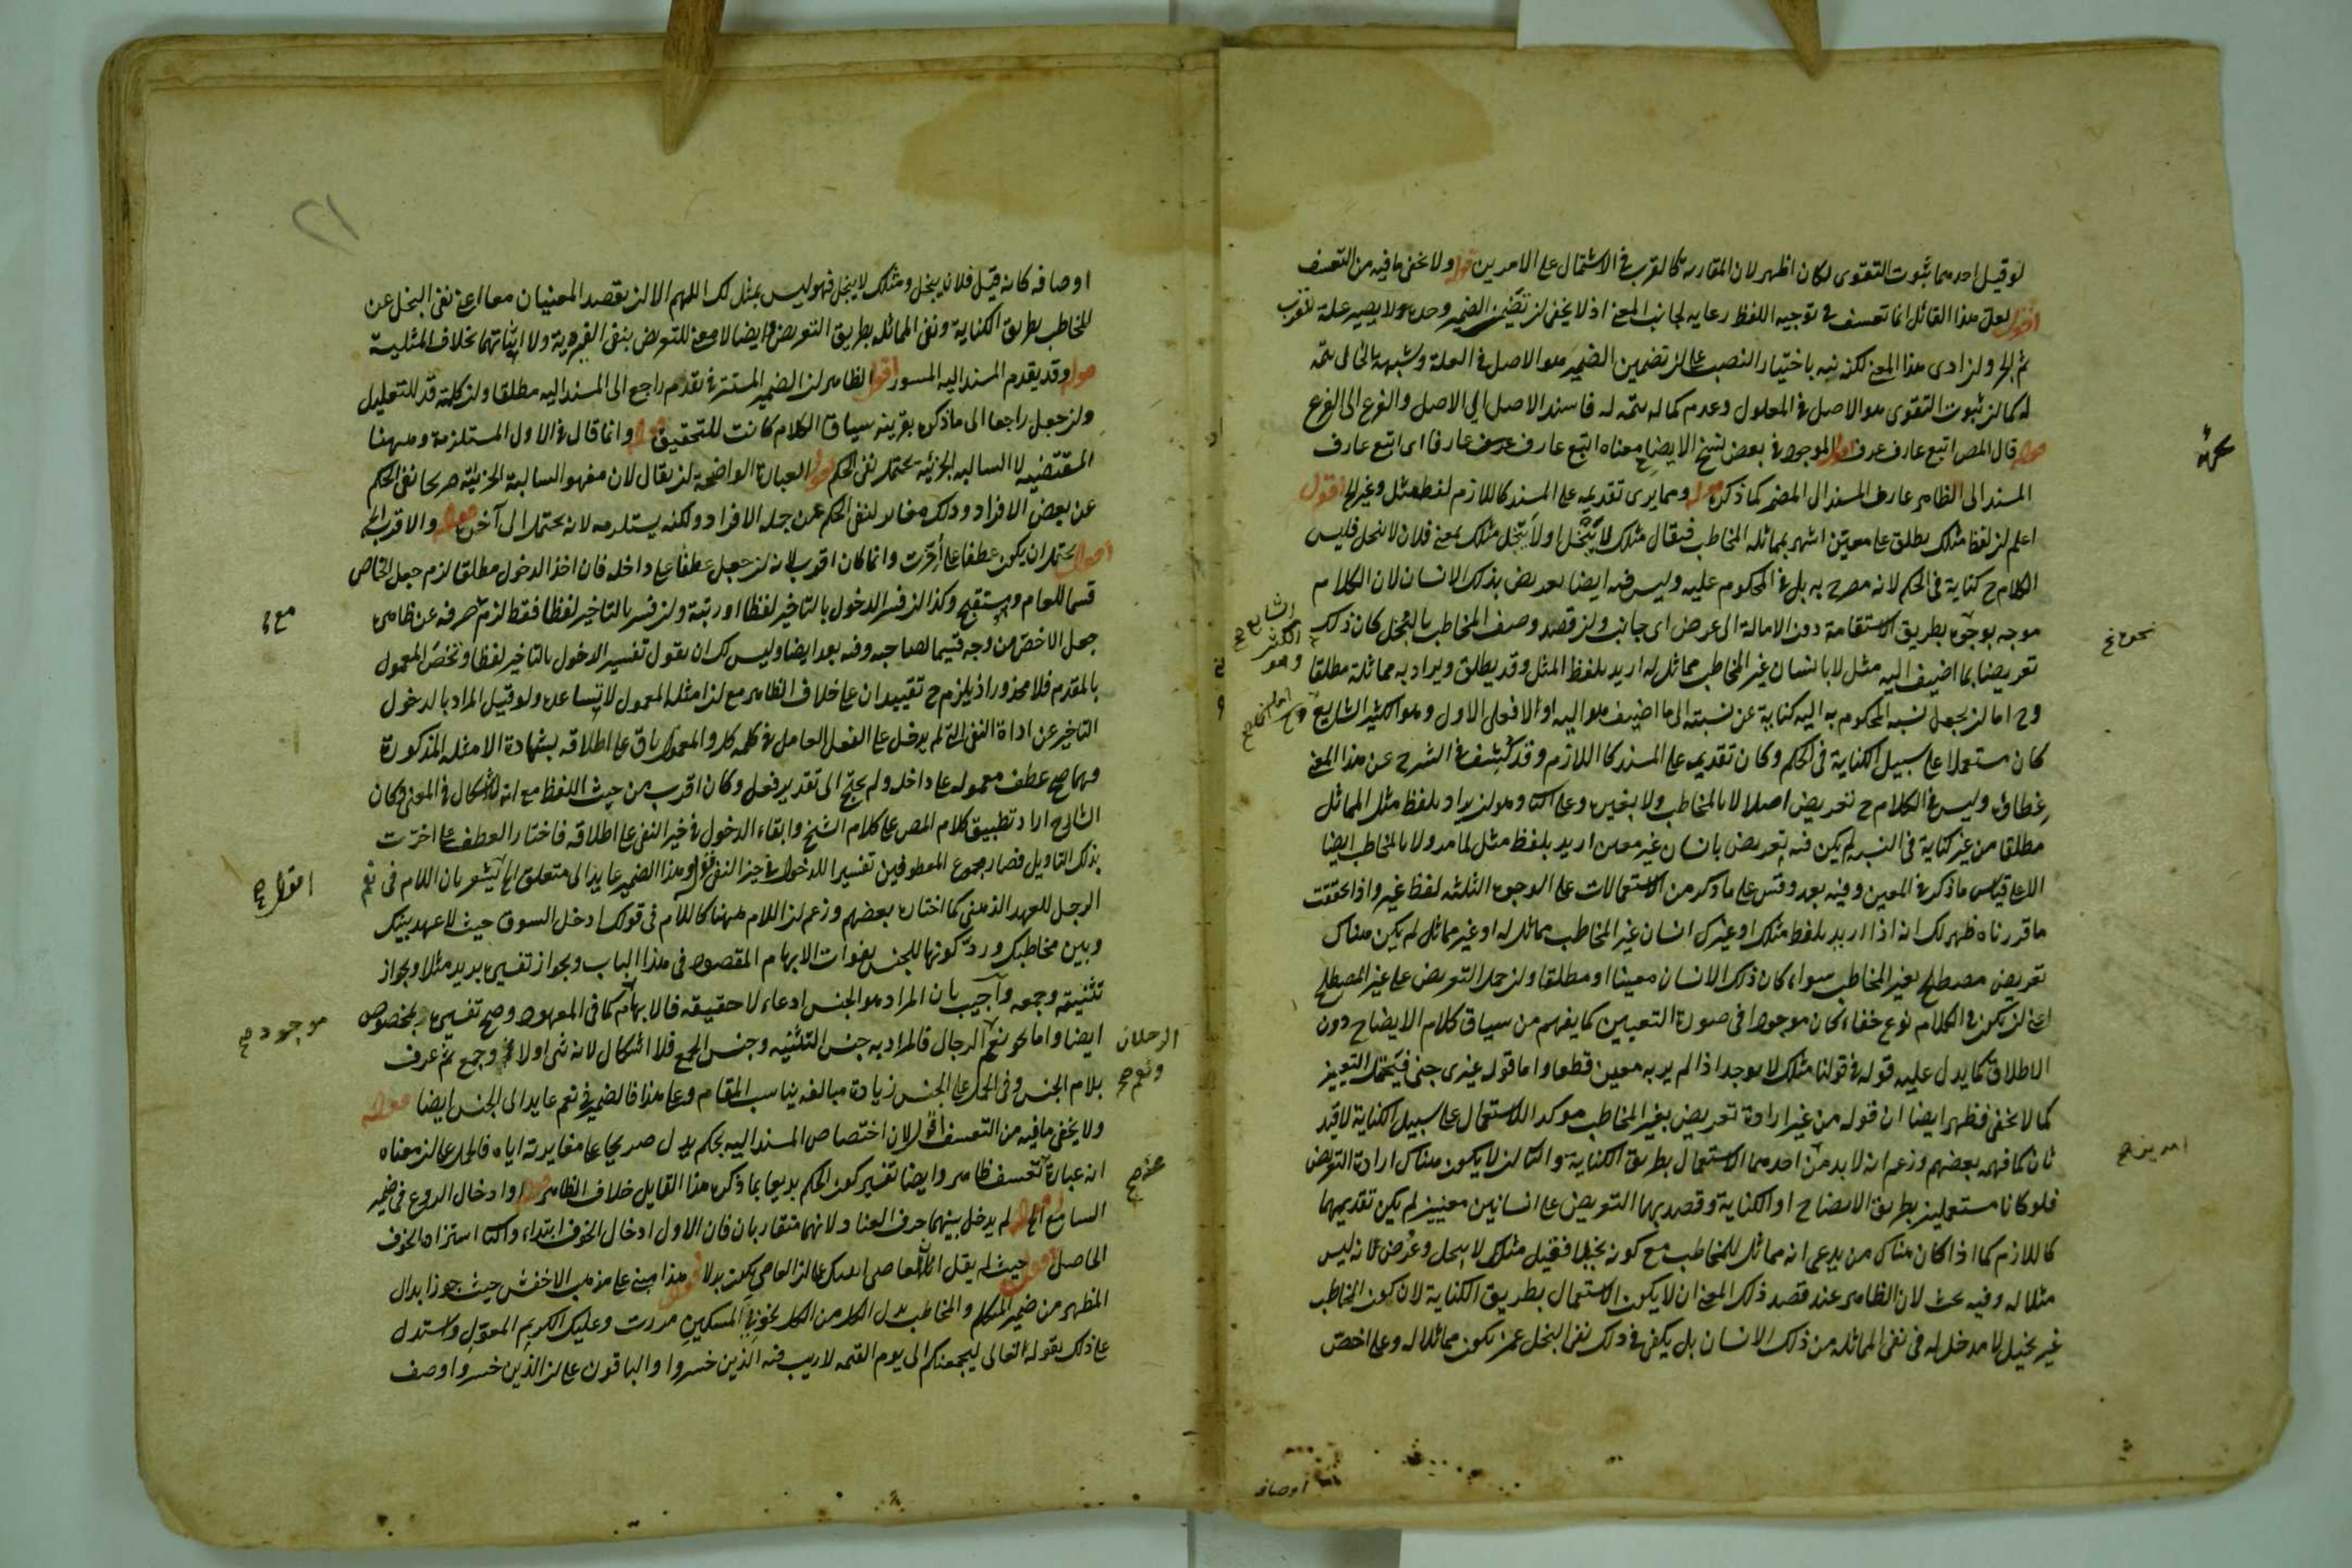 لو قيل احدهما ثبوت التقوى لكان اظهر لان المقاربة كالقرب في الاشتمال على الامرين قوله ولا يخفى ما فيه من التعسف
اقول لعل هذا القائل انما تعسف في توجيه اللفظ رعاية لجانب المعنى اذ لا يخفى ان تضمن الضمير وحده لا يصير علة لقرب
ثم الجر وان ادى هذا المعنى لكنه نبه باختيار النصب على ان تضمين الضمير هو الاصل في العلة وشبهه بالخالى تتمة
له كما ان ثبوت التقوى هو الاصل في المعلول وعدم كماله تتمة له فاسند الاصل الى الاصل والفرع الى الفرع
قوله قال المص اتبع عارف عرف اقول الموجود في بعض نسخ الايضاح معناه اتبع عارف عرف عارفا اى اتبع عارف
المسند الى الظاهر عارف المسند الى المضمر كما ذكره قوله ومما يرى تقديمه على المسند كاللازم لفظ مثل وغير الخ اقول
اعلم ان لفظ مثلك يطلق على معين اشتهر بمماثلة المخاطب فيقال مثلك لا يبخل او لا يبخل مثلك بمعنى فلان لا يبخل فليس
الكلام ح كناية في الحكم لانه مصرح به بل في المحكوم عليه وليس فيه ايضا تعريض بذلك الانسان لان الكلام
موجه بوجوه بطريق الاستقامة دون الامالة الى عرض اى جانب وان قصد وصف المخاطب بالبخل كان ذلك
تعريضا بما اضيف اليه مثل لا بانسان غير المخاطب مماثل له اريد بلفظ المثل وقد يطلق ويراد به مماثلة مطلقا
وح اما ان يجعل نسبة المحكوم به اليه كناية عن نسبته الى ما اضيف هو اليه او لا فعلى الاول وهو الكثير الشايع
كان مستعملا على سبيل الكناية في الحكم وكان تقديمه على المسند كاللازم وقد كشف في الشرح عن هذا المعنى
غطاؤه وليس في الكلام ح تعريض اصلا لا بالمخاطب ولا بغيره وعلى الثاني وهو ان يراد بلفظ مثل المماثل
مطلقا من غير كناية في النسبة لم يكن فيه تعريض بانسان غير معين اريد بلفظ مثل لما مر ولا بالمخاطب ايضا
الا على قياس ما ذكر في المعين وفيه بعد وقس على ما ذكر من الاستعمالات على الوجوه الثلثة لفظ غير واذا تحققت
ما قررناه ظهر لك انه اذا اريد بلفظ مثلك او غيرك انسان غير المخاطب مماثل له او غير مماثل لم يكن هناك
تعريض مصطلح بغير المخاطب سواء كان ذلك الانسان معينا او مطلقا وان حمل التعريض على غير المصطلح
اعنى ان يكون في الكلام نوع خفاء كان موجودا في صورة التعيين كما يفهم من سياق كلام الايضاح دون
الاطلاق كما يدل عليه قوله في قولنا مثلك لا يوجد اذا لم يرد به معين قطعا واما قوله غيرى جنى فيحتمل التعيين
كما لا يخفى فظهر ايضا ان قوله من غير ارادة تعريض بغير المخاطب موكد للاستعمال على سبيل الكناية لا قيد
ثان كما فهمه بعضهم وزعم انه لا بد من احدهما الاستعمال بطريق الكناية والثانى ان لا يكون هناك ارادة التعريض
فلو كانا مستعملين بطريق الايضاح او الكناية وقصد بهما التعريض على انسانين معينين لم يكن تقديمهما
كاللازم كما اذا كان هناك من يدعى انه مماثل للمخاطب مع كونه بخيلا فقيل مثلك لا يبخل وعرض بانه ليس
مثلا له وفيه بحث لان الظاهر عند قصد ذلك المعنى ان لا يكون الاستعمال بطريق الكناية لان كون المخاطب
غير بخيل لا مدخل له في نفى المماثلة من ذلك الانسان بل يكفى في ذلك نفى البخل عمن يكون مماثلا له وعلى اخص
اوصاف
٢١
اوصافه كانه قيل فلان يبخل ومثلك لا يبخل فهو ليس بمثل لك اللهم الا ان يقصد المعنيان معا اعنى نفى البخل عن
المخاطب بطريق الكناية ونفى المماثلة بطريق التعريض وايضا لا معنى للتعريض بنفى الغيرية ولا اثباتها بخلاف المثلية
قوله وقد يقدم المسند اليه المسور اقول الظاهر ان الضمير المستتر في يقدم راجع الى المسند اليه مطلقا وان كلمة قد للتقليل
وان جعل راجعا الى ما ذكره بقرينة سياق الكلام كانت للتحقيق قوله وانما قال في الاول المستلزمة وههنا
المقتضية لان السالبة الجزئية يحتمل نفى الحكم اقول العبارة الواضحة ان يقال لان مفهوم السالبة الجزئية صريحا نفى الحكم
عن بعض الافراد وذلك مغاير لنفى الحكم عن جملة الافراد ولكنه يستلزمه لانه يحتمل الى آخره قوله والاقرب الخ
اقول يحتمل ان يكون عطفا على أخّرت وانما كان اقرب لانه ان جعل عطفا على داخلة فان اخذ الدخول مطلقا لزم جعل الخاص
قسما للعام ويستقبح وكذا ان فسر الدخول بالتاخير لفظا او رتبة وان فسر بالتاخير لفظا فقط لزم صرفه عن ظاهره
جعل الاخص من وجه قسيما لصاحبه وفيه بعد ايضا وليس لك ان تقول تفسير الدخول بالتاخير لفظا ونخص المعمول
بالمقدم فلا محذور اذ يلزم ح تقييدان على خلاف الظاهر مع ان امثلة المعمول لا تساعده ولو قيل المراد بالدخول
التاخير عن اداة النفى التى لم يدخل على الفعل العامل في كلمة كل والمعمول باق على اطلاقه بشهادة الامثلة المذكورة
صح عطف معمولة على داخلة ولم يحتج الى تقدير فعل وكان اقرب من حيث اللفظ مع انه لا اشكال في المعنى وكان
الشارح اراد تطبيق كلام المص على كلام الشيخ وابقاء الدخول في حيز النفى على اطلاقه فاختار العطف على اخرت
بذلك التاويل فصار مجموع المعطوفين تفسيرا للدخول في حيز النفى قوله وهذا الضمير عايد الى متعلق الخ يشعر بان اللام في نعم
الرجل للعهد الذهنى كما اختاره بعضهم وزعم ان اللام ههنا كاللام في قولك ادخل السوق حيث لا عهد بينك
وبين مخاطبك ورد كونها للجنس بفوات الابهام المقصود في هذا الباب وبجواز تفسيره بزيد مثلا وبجواز
تثنيته وجمعه وأجيب بان المراد هو الجنس ادعاء لا حقيقة فالابهام كما في المعهود وصح تفسيره بمخصوص
ايضا واما نحو نعم الرجال فالمراد به جنس التثنية وجنس الجمع فلا اشكال لانه ثنى اولا وجمع ثم عرف
بلام الجنس وفى الحمل على الجنس زيادة مبالغة يناسب المقام وعلى هذا فالضمير في نعم عايد الى الجنس ايضا قوله
ولا يخفى ما فيه من التعسف اقول لان اختصاص المسند اليه بحكم يدل صريحا على مغايرته اياه فالحمل على ان معناه
انه عبارة تعسف ظاهر وايضا تفسير كون الحكم بديعا بما ذكره هذا القايل خلاف الظاهر قوله وادخال الروع في ضمير
السامع الخ اقول لم يدخل بينهما حرف العناد لانهما متقاربان فان الاول ادخال الخوف ابتداء والثانى استزاده الخوف
الحاصل قوله حيث لم يقل انا العاصى اتيتك على ان العاصى يكون بدلا اقول هذا مبنى على مذهب الاخفش حيث جوز ابدال
المظهر من ضمير المتكلم والمخاطب بدل الكل من الكل نحو بى المسكين مررت وعليك الكريم المعول واستدل
على ذلك بقوله تعالى ليجمعنكم الى يوم القيمة لا ريب فيه الذين خسروا والباقون على ان الذين خسروا وصف
الرجلان
ونعم صح
موجود صح